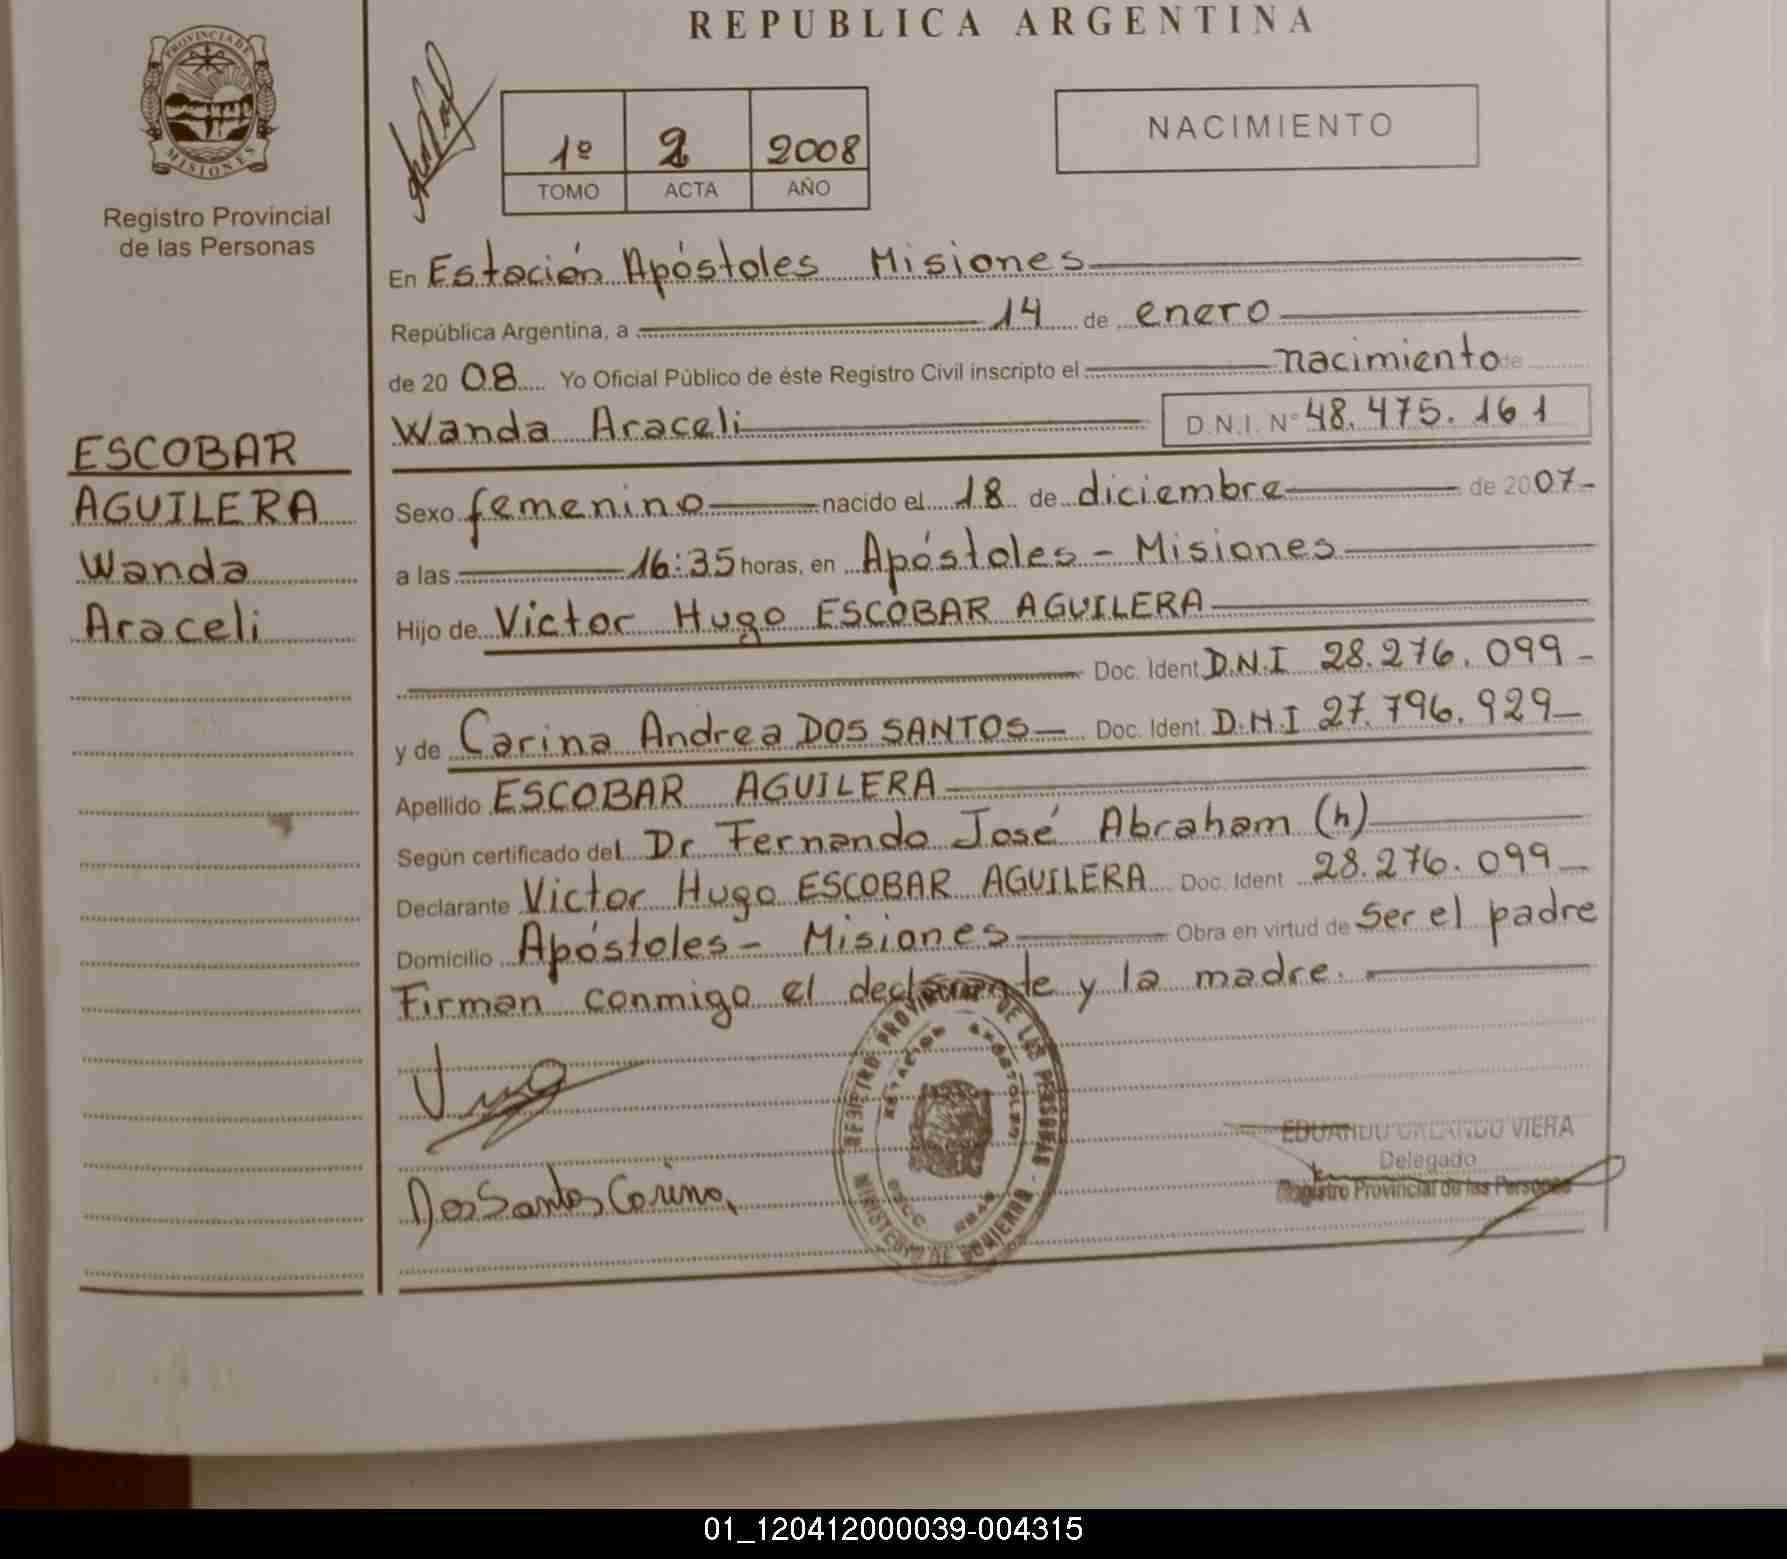 REPUBLICA ARGENTINA
PROVINCIA DE
MISIONES
Registro Provincial
de las Personas
1º 2 2008
TOMO ACTA AÑO
NACIMIENTO
ESCOBAR
AGUILERA
Wanda
Araceli
En Estación Apóstoles Misiones
República Argentina, a 14 de enero
de 20 08 Yo Oficial Público de éste Registro Civil inscripto el nacimiento de
Wanda Araceli D.N.I. Nº 48.475.161
Sexo femenino nacido el 18 de diciembre de 2007-
a las 16:35 horas, en Apóstoles - Misiones
Hijo de Victor Hugo ESCOBAR AGUILERA
Doc. Ident. D.N.I 28.276.099 -
y de Carina Andrea DOS SANTOS Doc. Ident. D.N.I 27.796.929
Apellido ESCOBAR AGUILERA
Según certificado del Dr Fernando José Abraham (h)
Declarante Victor Hugo ESCOBAR AGUILERA Doc. Ident 28.276.099
Domicilio Apóstoles - Misiones Obra en virtud de ser el padre
Firman conmigo el declarante y la madre.
REGISTRO PROVINCIAL DE LAS PERSONAS
ESTACION APOSTOLES
MINISTERIO DE GOBIERNO
Dos Santos Carina
EDUARDO ORLANDO VIERA
Delegado
Registro Provincial de las Personas
01_120412000039-004315